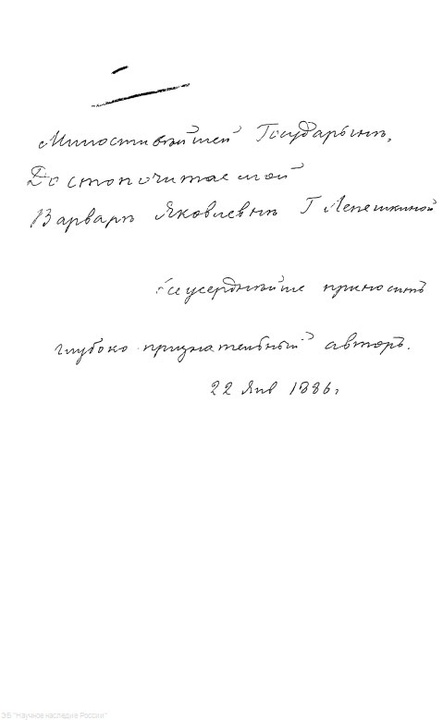 Милостивѣйшей Государынѣ,
Достопочитаемой
Варварѣ Яковлевнѣ Г Лепешкиной
Всеусерднѣйше приноситъ
глубоко признательный авторъ.
22 Янв 1886 г
ЭБ "Научное наследие России"